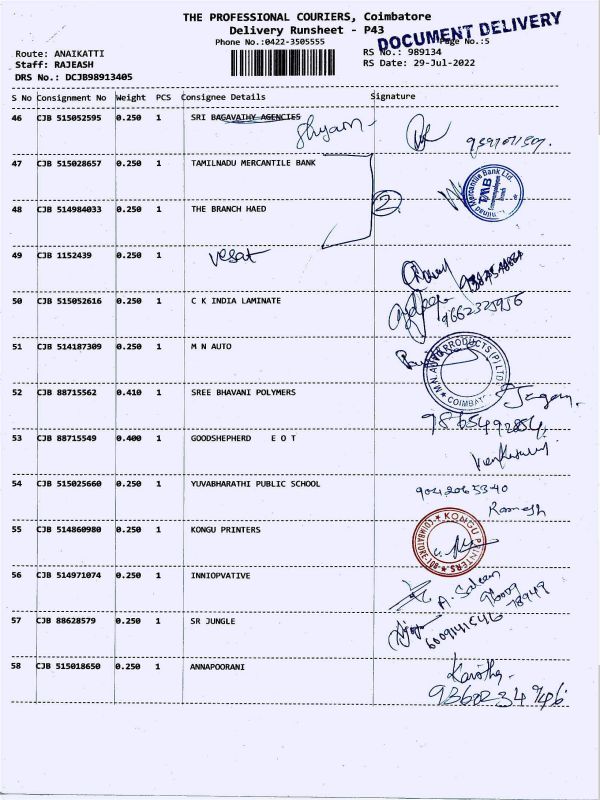 THE PROFESSIONAL COURIERS, Coimbatore
Delivery Runsheet - P43
DOCUMENT DELIVERY
Phone No.:0422-3505555
Page No.:5
Route: ANAIKATTI
RS No.: 989134
Staff: RAJEASH
RS Date: 29-Jul-2022
DRS No.: DCJB98913405
S No Consignment No Weight PCS Consignee Details Signature
46 CJB 515052595 0.250 1 SRI BAGAVATHY AGENCIES Shyam
47 CJB 515028657 0.250 1 TAMILNADU MERCANTILE BANK
Mercantile Bank Ltd.
TMB
2
48 CJB 514984033 0.250 1 THE BRANCH HAED
49 CJB 1152439 0.250 1
50 CJB 515052616 0.250 1 C K INDIA LAMINATE
9662325956
51 CJB 514187309 0.250 1 M N AUTO
M.N. AUTO PRODUCTS (P) LTD.
COIMBAT
52 CJB 88715562 0.410 1 SREE BHAVANI POLYMERS Jegan
9865492854
53 CJB 88715549 0.400 1 GOODSHEPHERD E O T
54 CJB 515025660 0.250 1 YUVABHARATHI PUBLIC SCHOOL
9042065340
Ramesh
55 CJB 514860980 0.250 1 KONGU PRINTERS
KONGU PRINTERS
56 CJB 514971074 0.250 1 INNIOPVATIVE
A. Saleem
96009
78949
57 CJB 88628579 0.250 1 SR JUNGLE
58 CJB 515018650 0.250 1 ANNAPOORANI
Kavitha